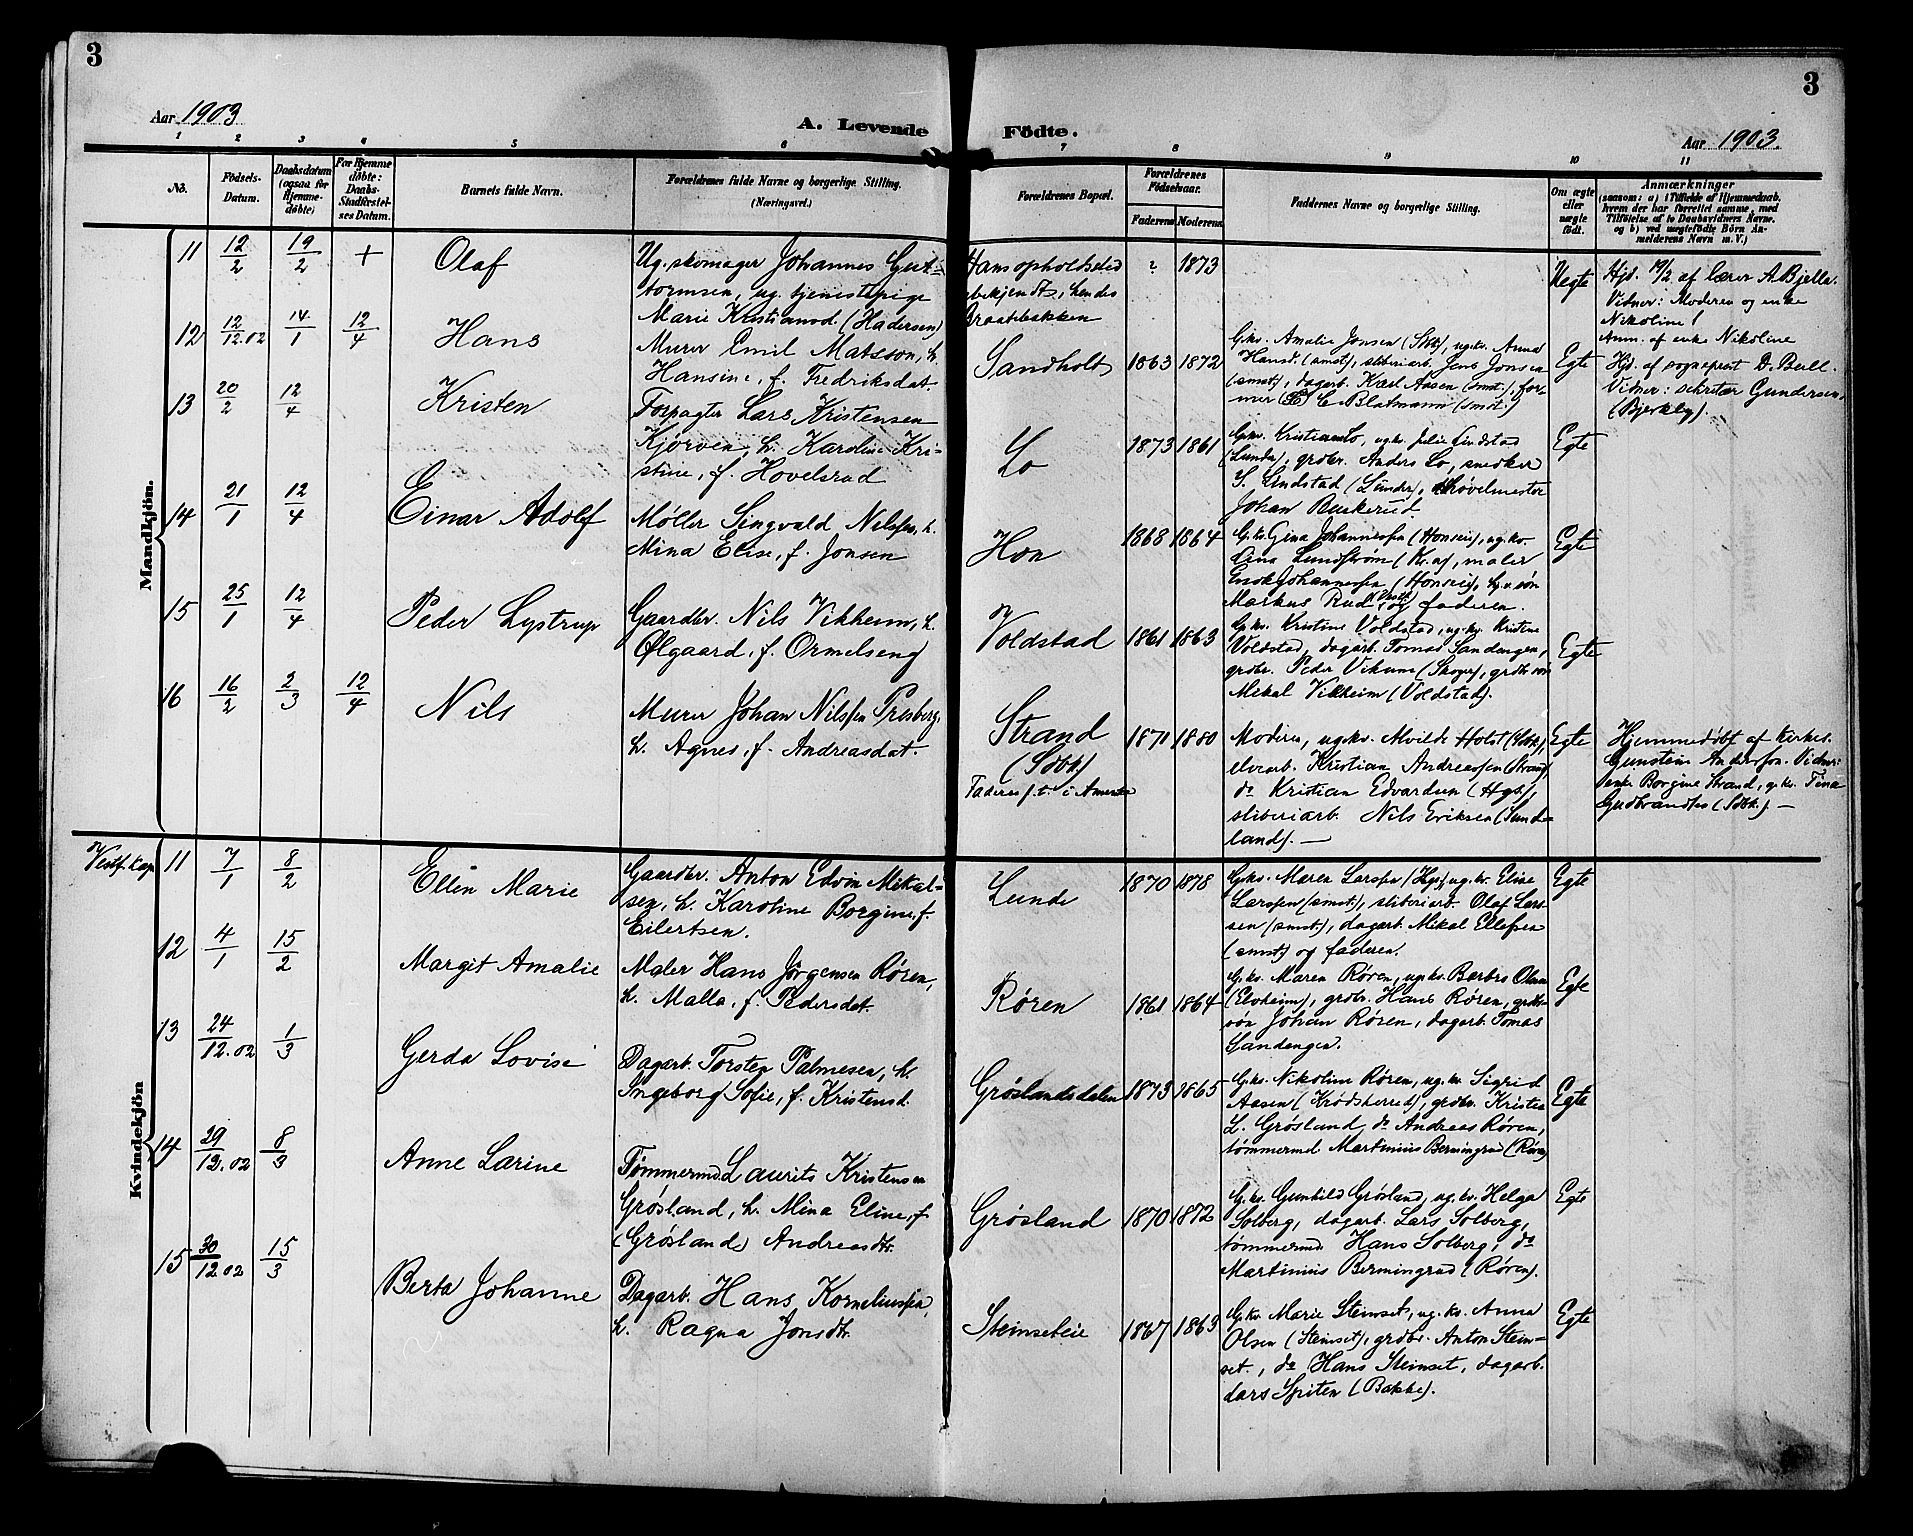 3
3
Aar 1903
A. Levende Födte.
Aar 1903.
1 2 3 4 5 6 7 8 9 10 11
No.
Födsels-Datum.
Daabsdatum (ogsaa for Hjemme-döbte)
For Hjemme döbte: Daabs-Stadfæstel-ses Datum.
Barnets fulde Navn.
Forældrenes fulde Navne og borgerlige Stilling.
(Næringsvei.)
Forældrenes Bopæl.
Forældrenes Födselsaar.
Faderens Moderens
Faddernes Navne og borgerlige Stilling.
Om ægte eller uægte födt.
Anmærkninger
(saasom: a) i Tilfælde af Hjemmedaab,
hvem der har forrettet samme, med
Tilföielse af to Daabsvidners Navne.
og b) ved uægtefödte Börn An-
melderens Navn m. V.)
Mandkjön.
11 12/2 19/2 + Olaf
Ug. skomager Johannes Gut-
tormsen, ug. tjenestepige
Marie Kristiansd. (Hadersen)
Hans opholdssted
ubekjendt, hendes
Braatebakken
? 1873
Uegte
Hjd. 19/2 af lærer A. Bjella.
Vidner: Moderen og enke
Nikoline
Anm. af enke Nikoline
12 12/12.02 14/1 12/4 Hans
Murer Emil Matsson, h.
Hansine, f. Fredriksdat.
Sandholt 1863 1872
G.ks. Amalie Jonsen (Sbk), ug.kv. Anna
Hansd. (smst), sliberiarb. Jens Jonsen
(smst), dagarb. Karl Aasen (smst.), for-
mer C. Blatmann (smst.)
Egte
Hjd. af sogneprest D. Bull.
Vidner: sekretær Gundersen,
(Bjerkly).
13 20/2 12/4 Kristen
Forpagter Lars Kristensen
Kjørven, h. Karoline Kri-
stine, f. Hovelsrud
Lo 1873 1861
G.kv. Kristian Lo, ug.kv. Julie Lindstad
(Lunder), grdbr. Anders Lo, snedker
S. Lindstad (Lunder), høvelmester
Johan Buskerud
Egte
14 21/1 12/4 Einar Adolf
Møller Singvald Nilsen, h.
Mina Elise, f. Jonsen
Hon 1868 1864
G.ks. Gina Johannessen (Honseie), ug.kv.
Lundstrøm (Kr.a), maler
Enok Johannessen (Honseie), g.m. søn
Markus Rud og faderen.
Egte
15 25/1 12/4 Peder Lystrup
Gaardbr. Nils Vikheim, h.
Ølgaard, f. Ormelseng
Voldstad 1861 1863
G.ks. Kristine Voldstad, ug.kv. Kristine
Voldstad, dagarb. Tomas Sandengen,
grdbr. Peder Vikum (Skoger), grdbr. søn
Mikal Vikheim (Voldstad).
Egte
16 16/2 2/3 12/4 Nils
Murer Johan Nilssen Presberg,
h. Agnes, f. Andreasdat.
Strand
(Sdbk)
Faderen f.t. i Amerika
1871 1880
Moderen, ug.kv. Alvilde Holst (Sdbk),
elvarb. Kristian Andreassen (Strand),
do Kristian Edvardsen (Hgb),
sliberiarb. Nils Eriksen (Sund-
land). —
Egte
Hjemmedøbt af kirkes.
Gunstein Anderssen. Vidner:
enke Borgine Strand, g.kv. Tina
Gudbrandsen (Sdbk.) —
Kvindekjön
Vestf. kap 11 7/1 8/2 Ellen Marie
Gaardbr. Anton Edvin Mikal-
sen, h. Karoline Borgine, f.
Eilertsen.
Lunde 1870 1878
G.ks. Maren Larssen (Hgs), ug.kv. Eline
Larssen (smst.), sliberiarb. Olaf Lars-
sen (smst.), dagarb. Mikal Ellefsen
(smst.) og faderen.
Egte
12 4/1 15/2 Margit Amalie
Maler Hans Jørgensen Røren,
h. Malla, f. Pedersdat.
Røren 1861 1864
G.ks. Maren Røren, ug.kv. Barbro Olsen
(Elvheim), grdbr. Hans Røren, grdbr.
søn Johan Røren, dagarb. Tomas
Sandengen.
Egte
13 24/12.02 1/3 Gerda Lovise
Dagarb. Torsten Palmesen, h.
Ingeborg Sofie, f. Kristensd.
Grøslandsdalen 1873 1865
G.ks. Nikoline Røren, ug.kv. Sigrid
Aasen (Krødsherred), grdbr. Kristian
L. Grøsland, do Andreas Røren,
tømmermd. Martinius Bermingrud (Røren)
Egte
14 29/12.02 8/3 Anne Larine
Tømmermd. Laurits Kristensen
Grøsland, h. Mina Eline, f.
(Grøsland) Andreasdtr.
Grøsland 1870 1872
G.ks. Gunhild Grøsland, ug.kv. Helga
Solberg, dagarb. Lars Solberg,
tømmermd. Hans Solberg, do
Martinius Bermingrud (Røren).
Egte
15 30/12.02 15/3 Berta Johanne
Dagarb. Hans Korneliussen,
h. Ragna Jonsdtr.
Steinseteie 1867 1863
G.kv. Marie Steinset, ug.kv. Anna
Olsen (Steinset), grdbr. Anton Stein-
set., do Hans Steinset, dagarb.
Lars Spiten (Bakke).
Egte